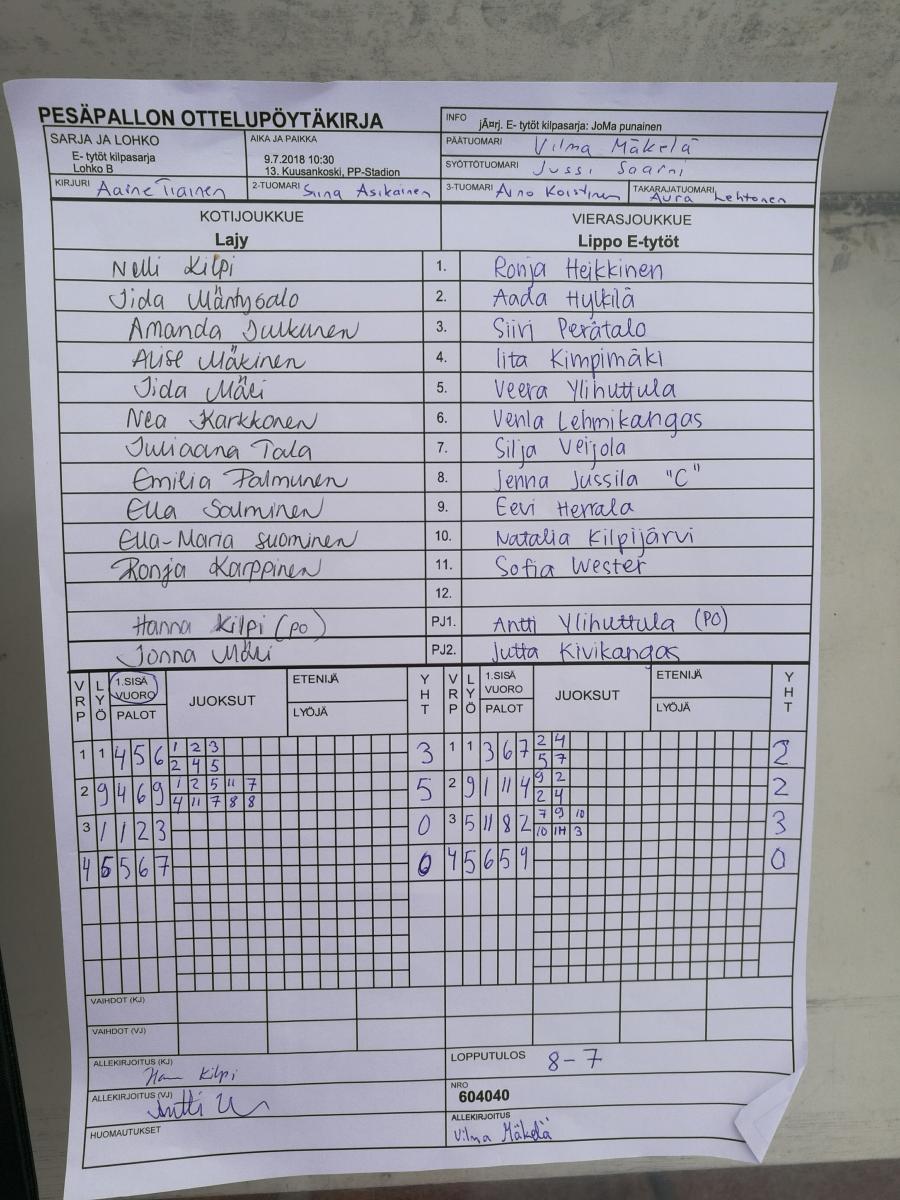 PESÄPALLON OTTELUPÖYTÄKIRJA
INFO jÃ¤rj. E- tytöt kilpasarja: JoMa punainen
SARJA JA LOHKO
E- tytöt kilpasarja
Lohko B
AIKA JA PAIKKA
9.7.2018 10:30
13. Kuusankoski, PP-Stadion
PÄÄTUOMARI Vilma Mäkelä
SYÖTTÖTUOMARI Jussi Saarni
KIRJURI Aaine Tiainen
2-TUOMARI Siina Asikainen
3-TUOMARI Aino Koistinen
TAKARAJATUOMARI Aura Lehtonen
KOTIJOUKKUE VIERASJOUKKUE
Lajy Lippo E-tytöt
Nelli Kilpi 1. Ronja Heikkinen
Iida Mäntysalo 2. Aada Hylkilä
Amanda Julkunen 3. Siiri Perätalo
Alise Mäkinen 4. Iita Kimpimäki
Iida Mäki 5. Veera Ylihuttula
Nea Karkkonen 6. Venla Lehmikangas
Juliaana Tala 7. Silja Veijola
Emilia Palmunen 8. Jenna Jussila "C"
Ella Salminen 9. Eevi Herrala
Ella-Maria Suominen 10. Natalia Kilpijärvi
Ronja Karppinen 11. Sofia Wester
12.
Hanna Kilpi (PO) PJ1. Antti Ylihuttula (PO)
Jonna Mäki PJ2. Jutta Kivikangas
VRP LYÖ 1.SISÄ VUORO PALOT JUOKSUT ETENIJÄ LYÖJÄ YHT VRP LYÖ 1.SISÄ VUORO PALOT JUOKSUT ETENIJÄ LYÖJÄ YHT
1 1 4 5 6 1 2 3 3 1 1 3 6 7 2 4 2
2 4 5 5 7
2 9 4 6 9 1 2 5 11 7 5 2 9 1 11 4 9 2 2
4 11 7 8 8 2 4
3 1 1 2 3 0 3 5 11 8 2 7 9 10 3
10 1H 3
4 5 5 6 7 0 4 5 6 5 9 0
VAIHDOT (KJ)
VAIHDOT (VJ)
ALLEKIRJOITUS (KJ) Kilpi
LOPPUTULOS 8-7
ALLEKIRJOITUS (VJ) Antti
NRO
604040
HUOMAUTUKSET
ALLEKIRJOITUS
Vilma Mäkelä